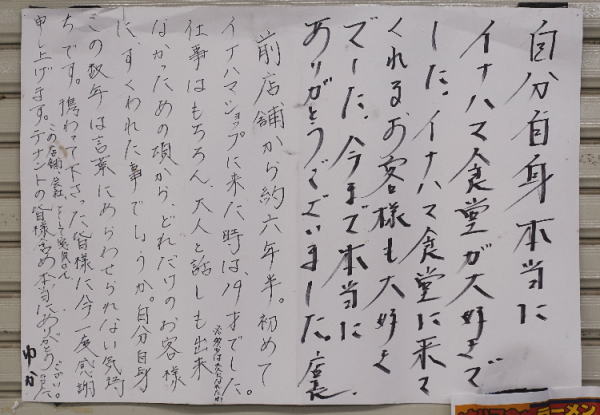 自分自身本当に
イナハマ食堂が大好きで
した。イナハマ食堂に来て
くれるお客様も大好き
でした。今まで本当に
ありがとうございました。店長
前店舗から約六年半。初めて
イナハマショップに来た時は、19才でした。
仕事はもちろん、大人と話しも出来
なかったあの頃から、どれだけのお客様
に、すくわれた事でしょうか。自分自身
この数年は言葉にあらわせられない気持
ちです。携わって下さった皆様に今一度感謝
申し上げます。テナントの皆様含め本当にありがとうございました。
ゆか
ラーメン